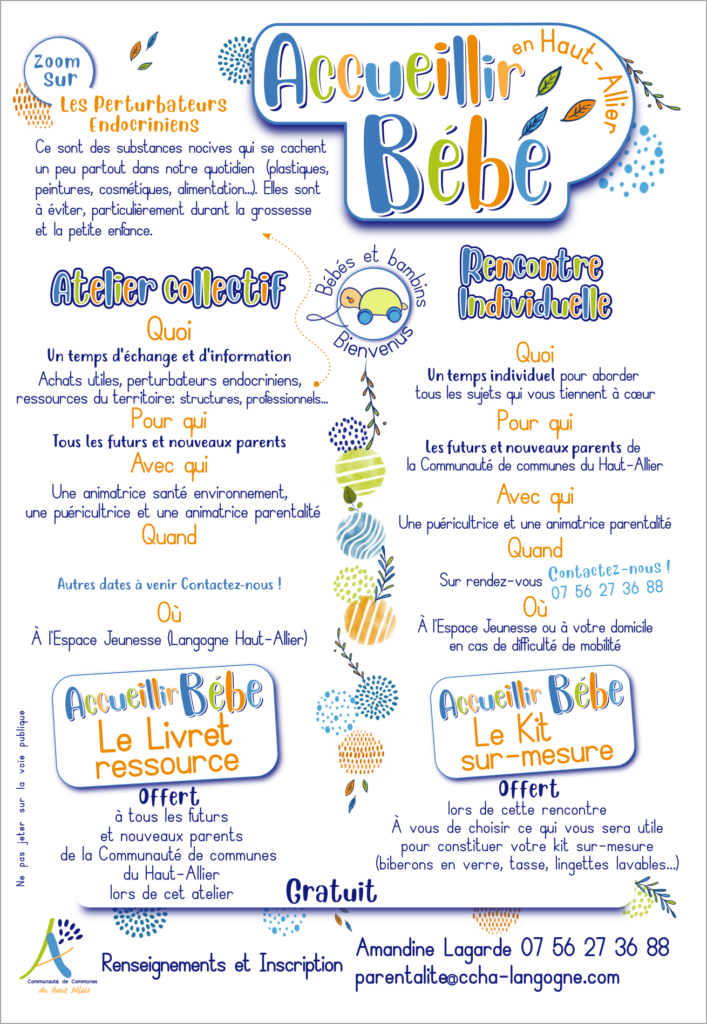 Zoom
Sur
Les Perturbateurs
Endocriniens
Ce sont des substances nocives qui se cachent
un peu partout dans notre quotidien (plastiques,
peintures, cosmétiques, alimentation...). Elles sont
à éviter, particulièrement durant la grossesse
et la petite enfance.
Accueillir
en Haut-Allier
Bébé
Bébés et bambins
Bienvenus
Atelier collectif
Quoi
Un temps d'échange et d'information
Achats utiles, perturbateurs endocriniens,
ressources du territoire: structures, professionnels...
Pour qui
Tous les futurs et nouveaux parents
Avec qui
Une animatrice santé environnement,
une puéricultrice et une animatrice parentalité
Quand
Autres dates à venir Contactez-nous !
Où
À l'Espace Jeunesse (Langogne Haut-Allier)
Accueillir Bébé
Le Livret
ressource
Offert
à tous les futurs
et nouveaux parents
de la Communauté de communes
du Haut-Allier
lors de cet atelier
Rencontre
Individuelle
Quoi
Un temps individuel pour aborder
tous les sujets qui vous tiennent à cœur
Pour qui
Les futurs et nouveaux parents de
la Communauté de communes du Haut-Allier
Avec qui
Une puéricultrice et une animatrice parentalité
Quand
Sur rendez-vous Contactez-nous !
07 56 27 36 88
Où
À l'Espace Jeunesse ou à votre domicile
en cas de difficulté de mobilité
Accueillir Bébé
Le Kit
sur-mesure
Offert
lors de cette rencontre
À vous de choisir ce qui vous sera utile
pour constituer votre kit sur-mesure
(biberons en verre, tasse, lingettes lavables...)
Gratuit
Ne pas jeter sur la voie publique
Communauté de Communes
du Haut Allier
Renseignements et Inscription
Amandine Lagarde 07 56 27 36 88
parentalite@ccha-langogne.com